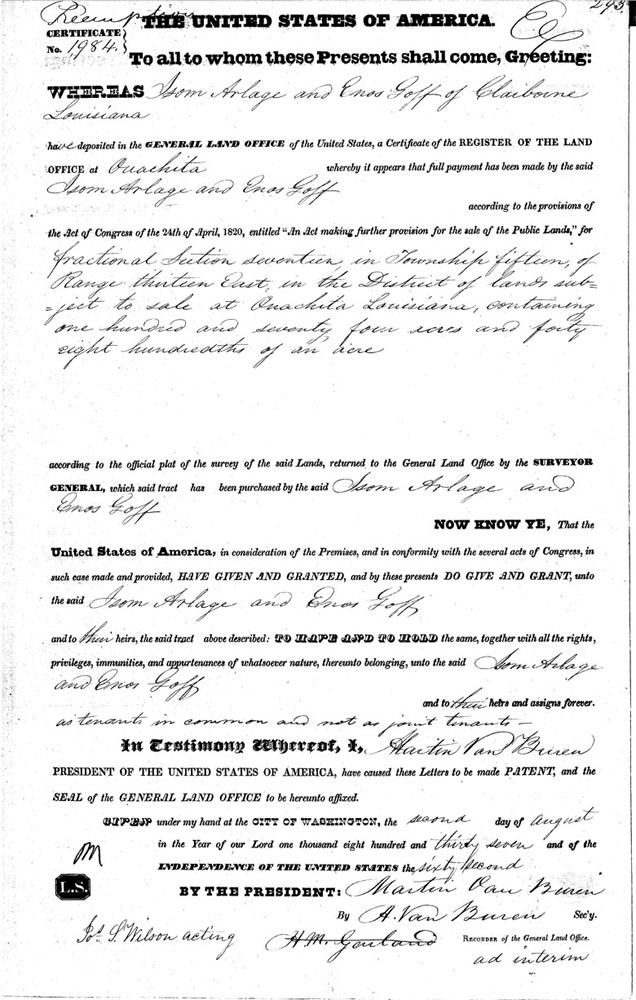 Preemption THE UNITED STATES OF AMERICA. 293.
CERTIFICATE
No. 1984.
To all to whom these Presents shall come, Greeting:
WHEREAS Isom Arlage and Enos Goff of Claiborne
Louisiana
have deposited in the GENERAL LAND OFFICE of the United States, a Certificate of the REGISTER OF THE LAND
OFFICE at Ouachita whereby it appears that full payment has been made by the said
Isom Arlage and Enos Goff
according to the provisions of
the Act of Congress of the 24th of April, 1820, entitled "An Act making further provision for the sale of the Public Lands," for
fractional Section seventeen, in Township fifteen, of
Range thirteen East, in the District of lands sub=
=ject to sale at Ouachita Louisiana, containing
one hundred and seventy four acres and forty
eight hundredths of an acre
according to the official plat of the survey of the said Lands, returned to the General Land Office by the SURVEYOR
GENERAL, which said tract has been purchased by the said Isom Arlage and
Enos Goff
NOW KNOW YE, That the
United States of America, in consideration of the Premises, and in conformity with the several acts of Congress, in
such case made and provided, HAVE GIVEN AND GRANTED, and by these presents DO GIVE AND GRANT, unto
the said Isom Arlage and Enos Goff,
and to their heirs, the said tract above described: TO HAVE AND TO HOLD the same, together with all the rights,
privileges, immunities, and appurtenances of whatsoever nature, thereunto belonging, unto the said Isom Arlage
and Enos Goff
and to their heirs and assigns forever.
as tenants in common and not as joint tenants —
In Testimony Whereof, I, Martin Van Buren
PRESIDENT OF THE UNITED STATES OF AMERICA, have caused these Letters to be made PATENT, and the
SEAL of the GENERAL LAND OFFICE to be hereunto affixed.
GIVEN under my hand at the CITY OF WASHINGTON, the second day of August
in the Year of our Lord one thousand eight hundred and thirty seven and of the
INDEPENDENCE OF THE UNITED STATES the sixty second
L.S.
BY THE PRESIDENT: Martin Van Buren
By A. Van Buren Sec'y.
Jos. S. Wilson acting H. M. Garland RECORDER of the General Land Office.
ad interim